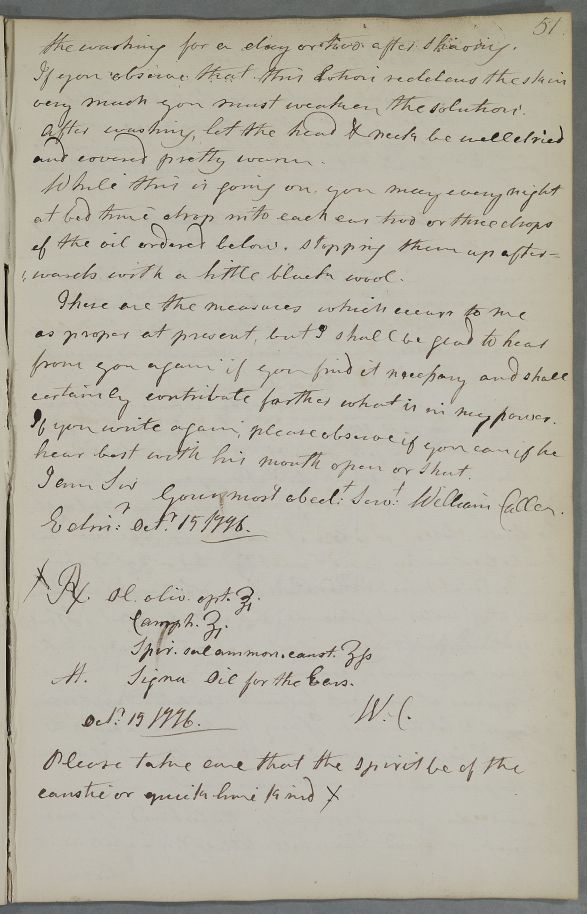 51.
the washing for a day or two after shaving.
If you observe that this Lotion reddens the skin
very much you must weaken the solution.
After washing, let the head & neck be well dried
and covered pretty warm.
While this is going on you may every night
at bed time drop into each ear two or three drops
of the oil ordered below. stopping them up after=
wards with a little black wool.
These are the measures which occurr to me
as proper at present, but I shall be glad to hear
from you again if you find it necessary and shall
certainly contribute farther what is in my power.
If you write again, please observe if you can if he
hear best with his mouth open or shut.
I am Sir
Your most obedt. Servt. William Cullen.
Edinr. Octr. 15 1776.
X ℞. Ol. oliv. opt. ℥i.
Camph. ʒi.
Spir. sal ammon. caust. ʒſs
M. Signa Oil for the Ears.
Octr. 15 1776. W. C.
Please take care that the spirit be of the
caustic or quick lime kind X